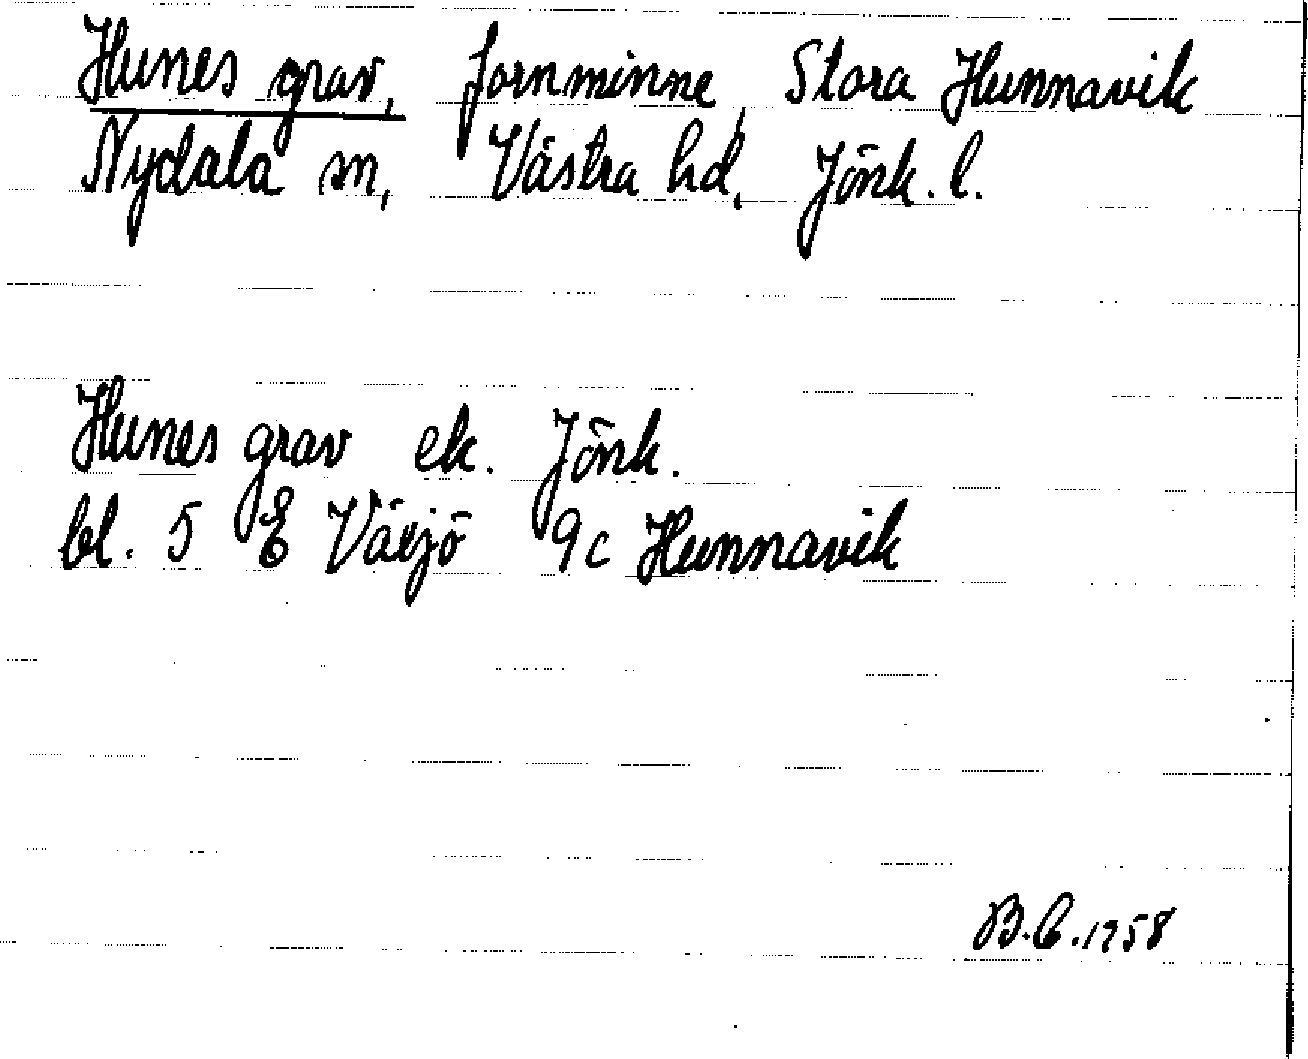 Hunes grav, fornminne, Stora Hunnavik
Nydala sn, Västra hd, Jönk. l.
Hunes grav ek. Jönk.
bl. 5 E Växjö 9c Hunnavik
B.C. 1958